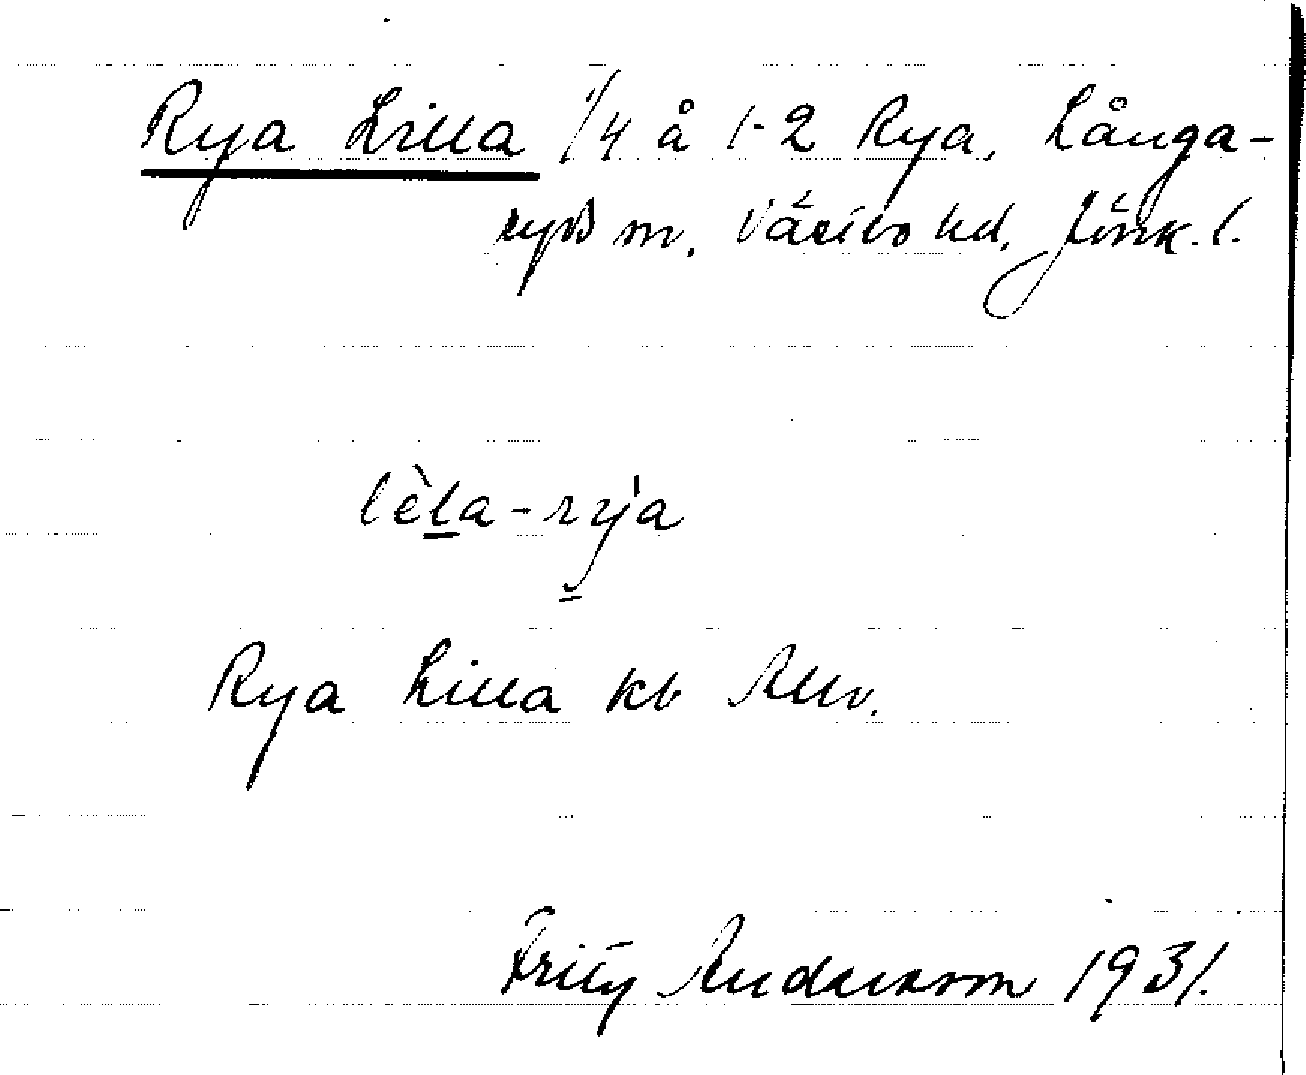 Rya Lilla 1/4 å 1-2 Rya, Långa-
ryds sn, Västbo hd, Jönk. l.
lèla-ry'a
Rya Lilla kb Allv.
Fritz Anderson 1931.